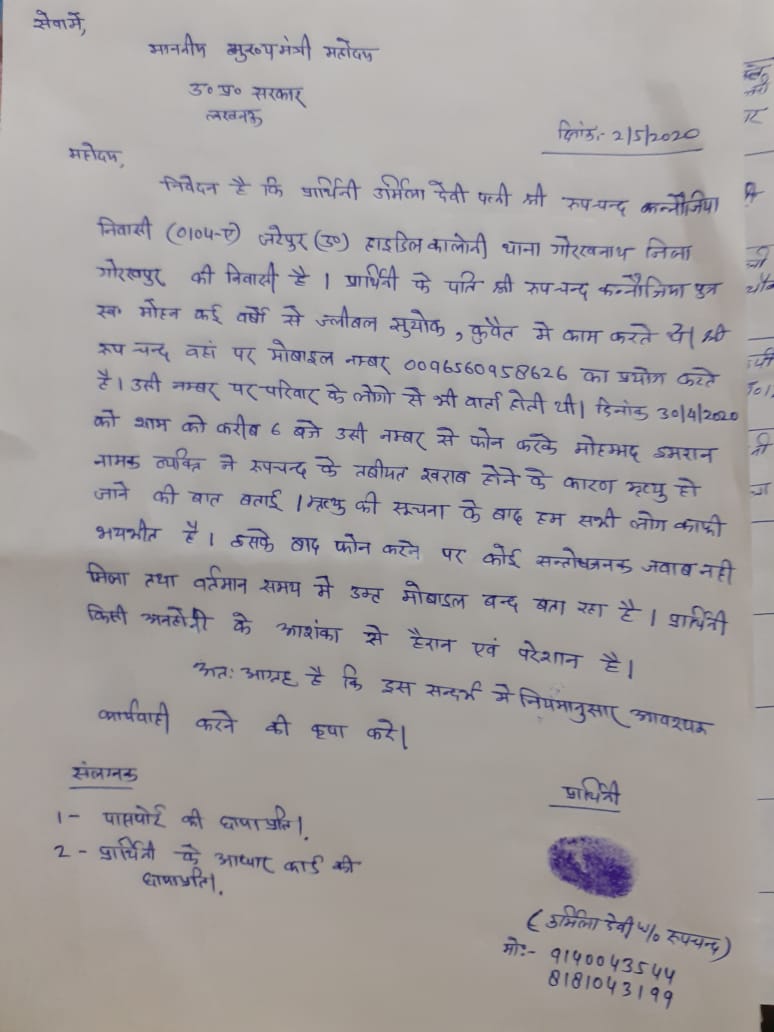 सेवामें,
माननीय मुख्यमंत्री महोदय
उ० प्र० सरकार
लखनऊ
दिनांक:- 2/5/2020
महोदय,
निवेदन है कि प्रार्थिनी उर्मिला देवी पत्नी श्री रुपचन्द कन्नौजिया
निवासी (0104-ए) जटेपुर (उ०) हाइडिल कालोनी थाना गोरखनाथ जिला
गोरखपुर की निवासी है । प्रार्थिनी के पति श्री रुपचन्द कन्नौजिया पुत्र
स्व० मोहन कई वर्षो से ग्लोबल सुयोक, कुवैत मे काम करते थे। श्री
रुप चन्द वहां पर मोबाइल नम्बर 0096560958626 का प्रयोग करते
है। उसी नम्बर पर परिवार के लोगो से भी वार्ता होती थी। दिनांक 30/4/2020
को शाम को करीब 6 बजे उसी नम्बर से फोन करके मोहम्मद इमरान
नामक व्यक्ति ने रुपचन्द के तबीयत खराब होने के कारण मृत्यु हो
जाने की बात बताई । मृत्यु की सूचना के बाद हम सभी लोग काफी
भयभीत है । इसके बाद फोन करने पर कोई सन्तोषजनक जवाब नही
मिला तथा वर्तमान समय मे उक्त मोबाइल बन्द बता रहा है । प्रार्थिनी
किसी अनहोनी के आशंका से हैरान एवं परेशान है।
अत: आग्रह है कि इस सन्दर्भ मे नियमानुसार आवश्यक
कार्यवाही करने की कृपा करे।
संलग्नक
1- पासपोर्ट की छायाप्रति।
2 - प्रार्थिनी के आधार कार्ड की
छायाप्रति।
प्रार्थिनी
( उर्मिला देवी w/o रुपचन्द )
मो:- 9140043544
8181043199